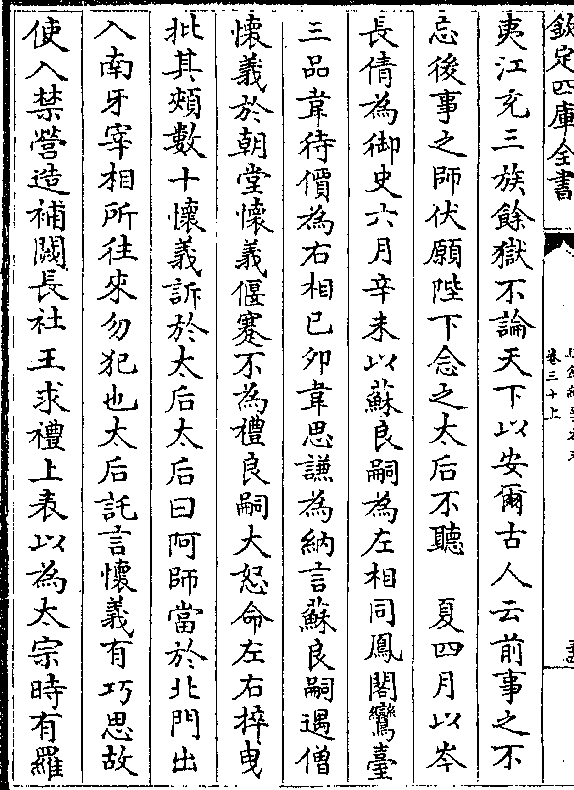 欽定四庫全書
卷三十上
夷江充三族餘獄不論天下以安爾古人云前事之不
忘後事之師伏願陛下念之太后不聽　夏四月以岑
長倩為御史六月辛未以蘇良嗣為左相同鳳閣鸞臺
三品韋待價為右相已卯韋思謙為納言蘇良嗣遇僧
懷義於朝堂懷義偃蹇不為禮良嗣大怒命左右捽曳
批其頰數十懷義訴於太后太后曰阿師當於北門出
入南牙宰相所往來勿犯也太后託言懷義有巧思故
使入禁營造補闕長社王求禮上表以為太宗時有羅